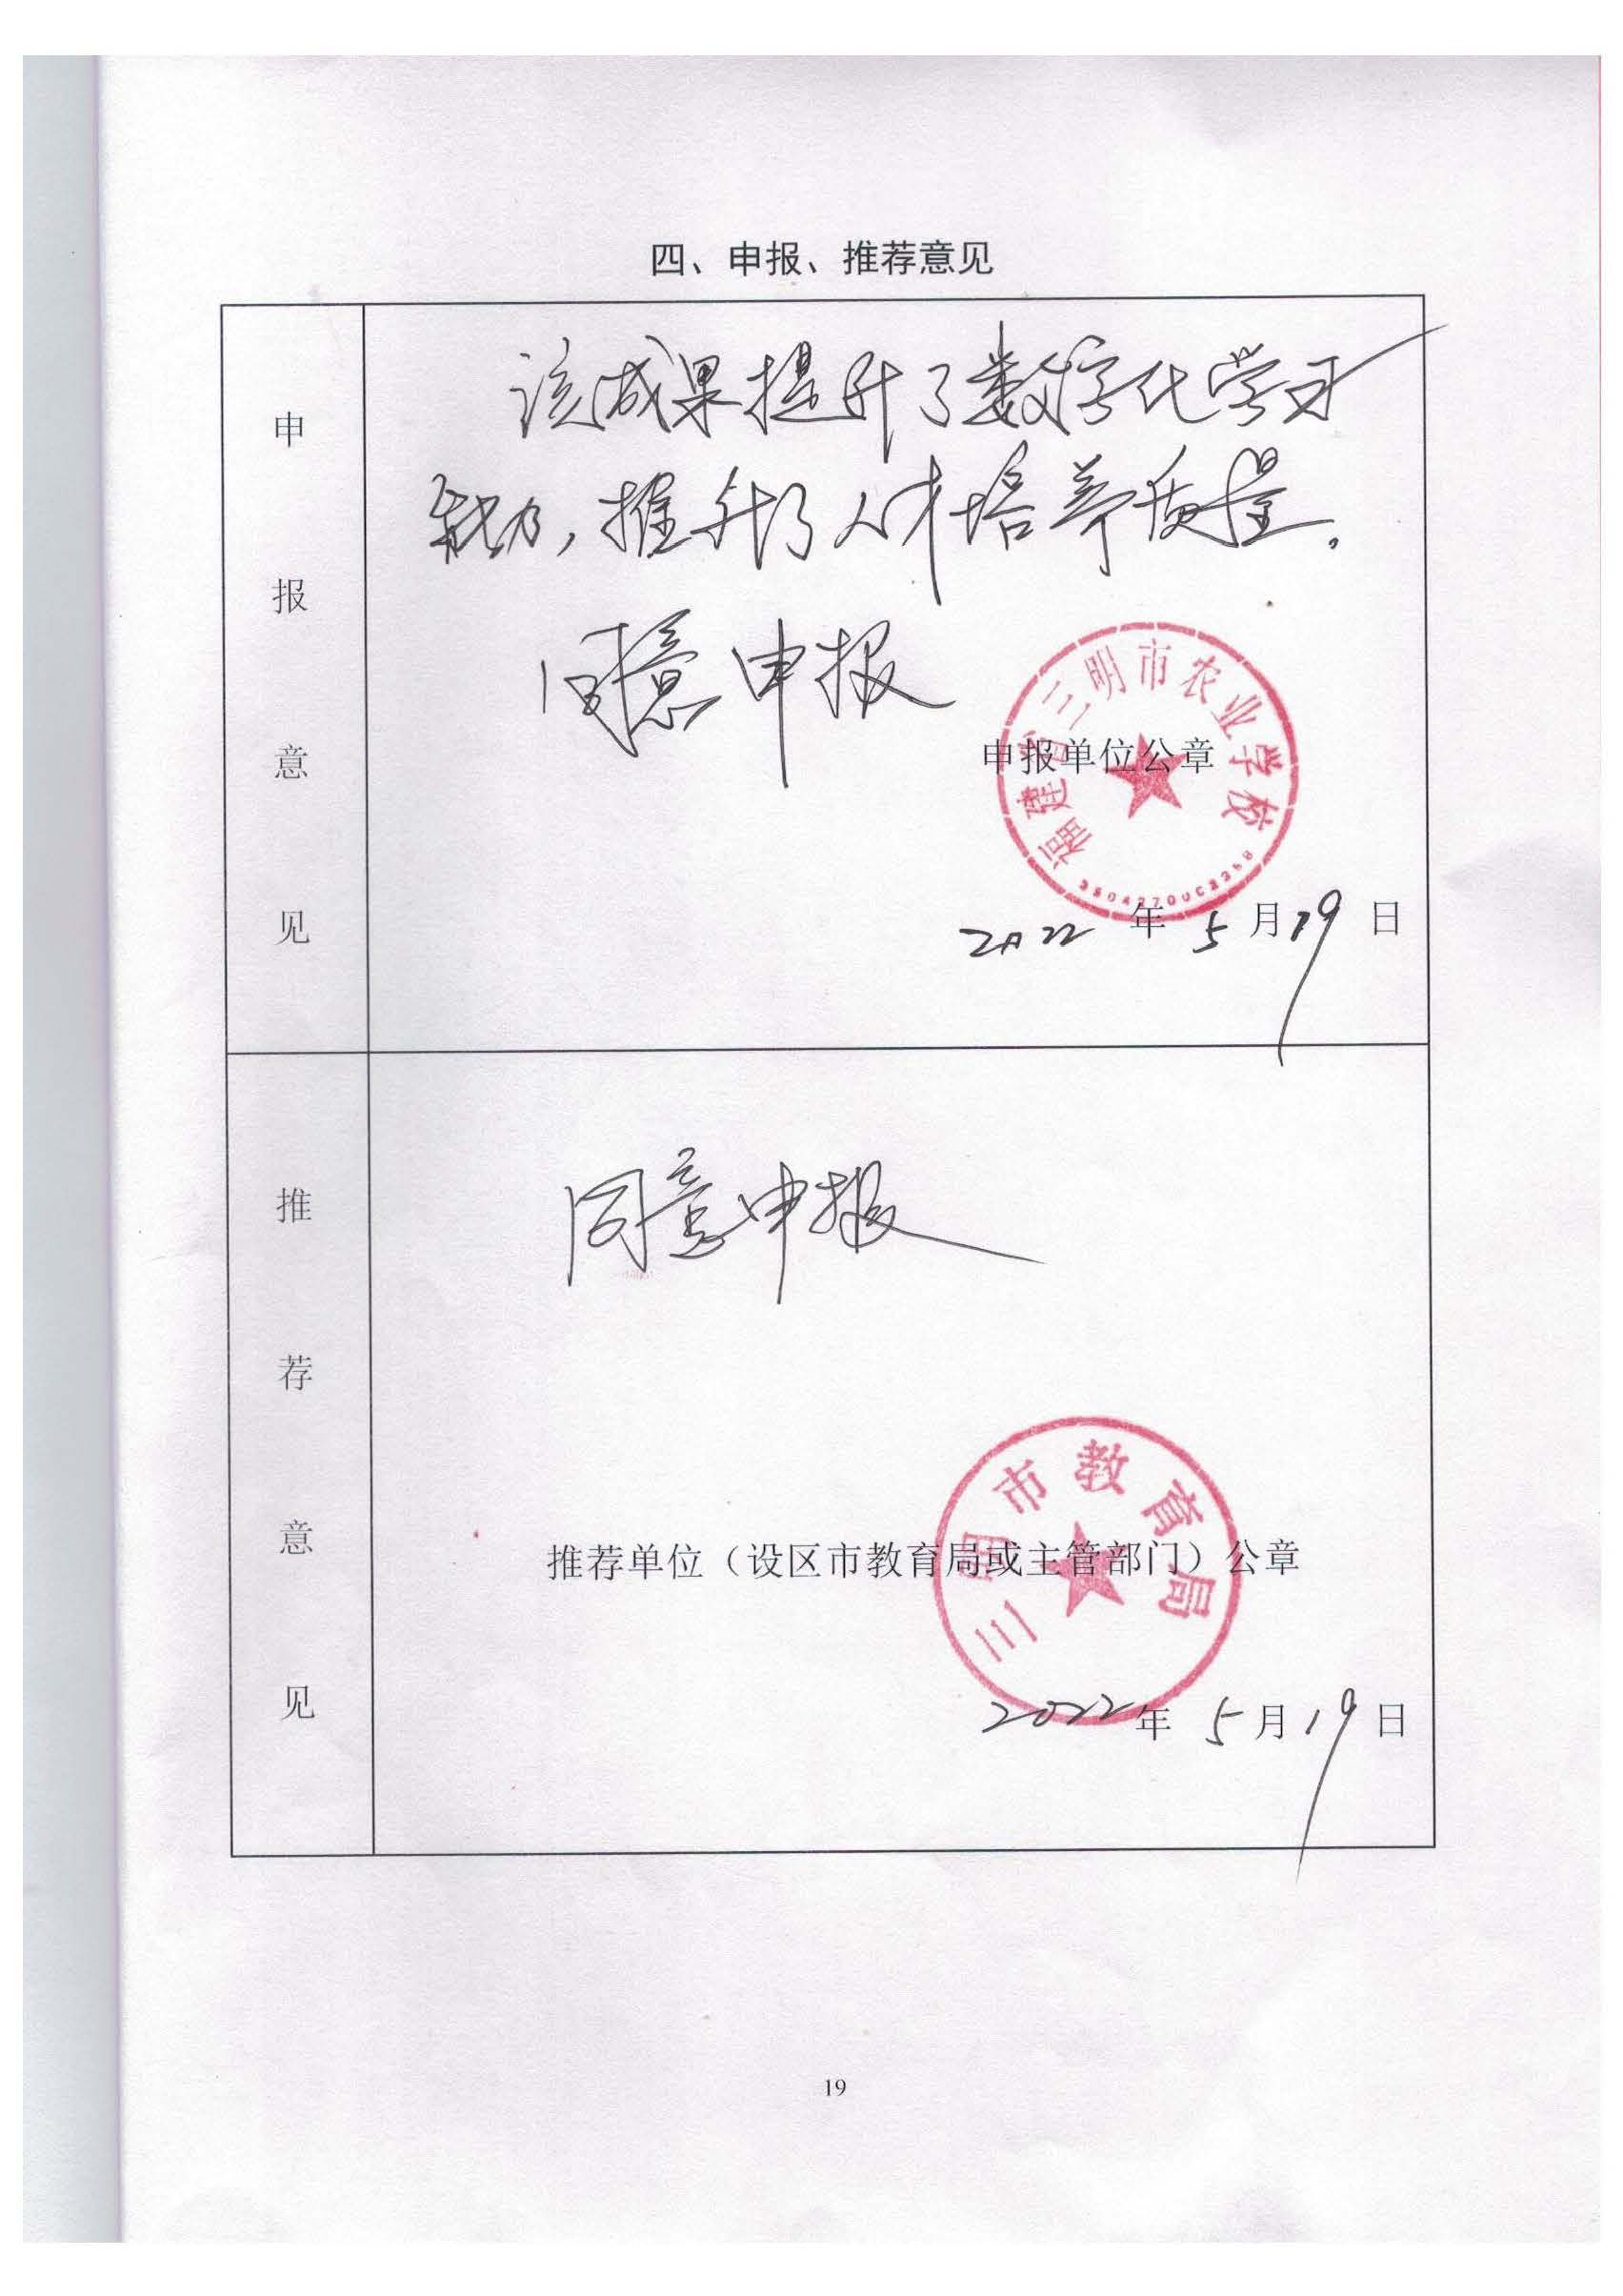 四、申报、推荐意见
申报意见
该成果提升了数字化学习
能力，推升了人才培养质量。
同意申报
福建省三明市农业学校
申报单位公章
2022年5月19日
推荐意见
同意申报
三明市教育局
推荐单位（设区市教育局或主管部门）公章
2022年5月19日
19